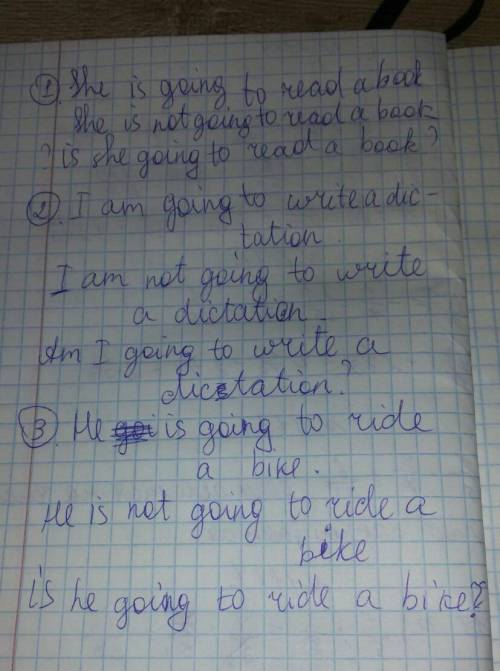 1. She is going to read a book
She is not going to read a book
? is she going to read a book?
2. I am going to write a dic-
tation.
I am not going to write
a dictation.
Am I going to write a
dictation?
3. He is going to ride
a bike.
He is not going to ride a
bike
is he going to ride a bike?